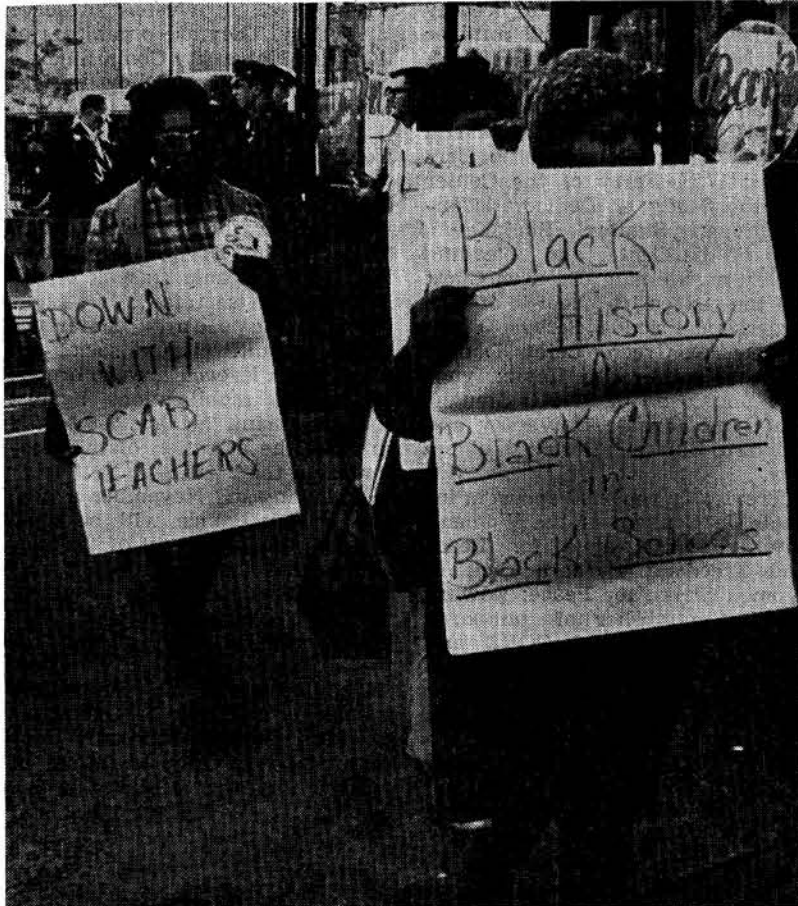 DOWN
WITH
SCAB
TEACHERS
Black
History
for
Black Children
in
Black Schools